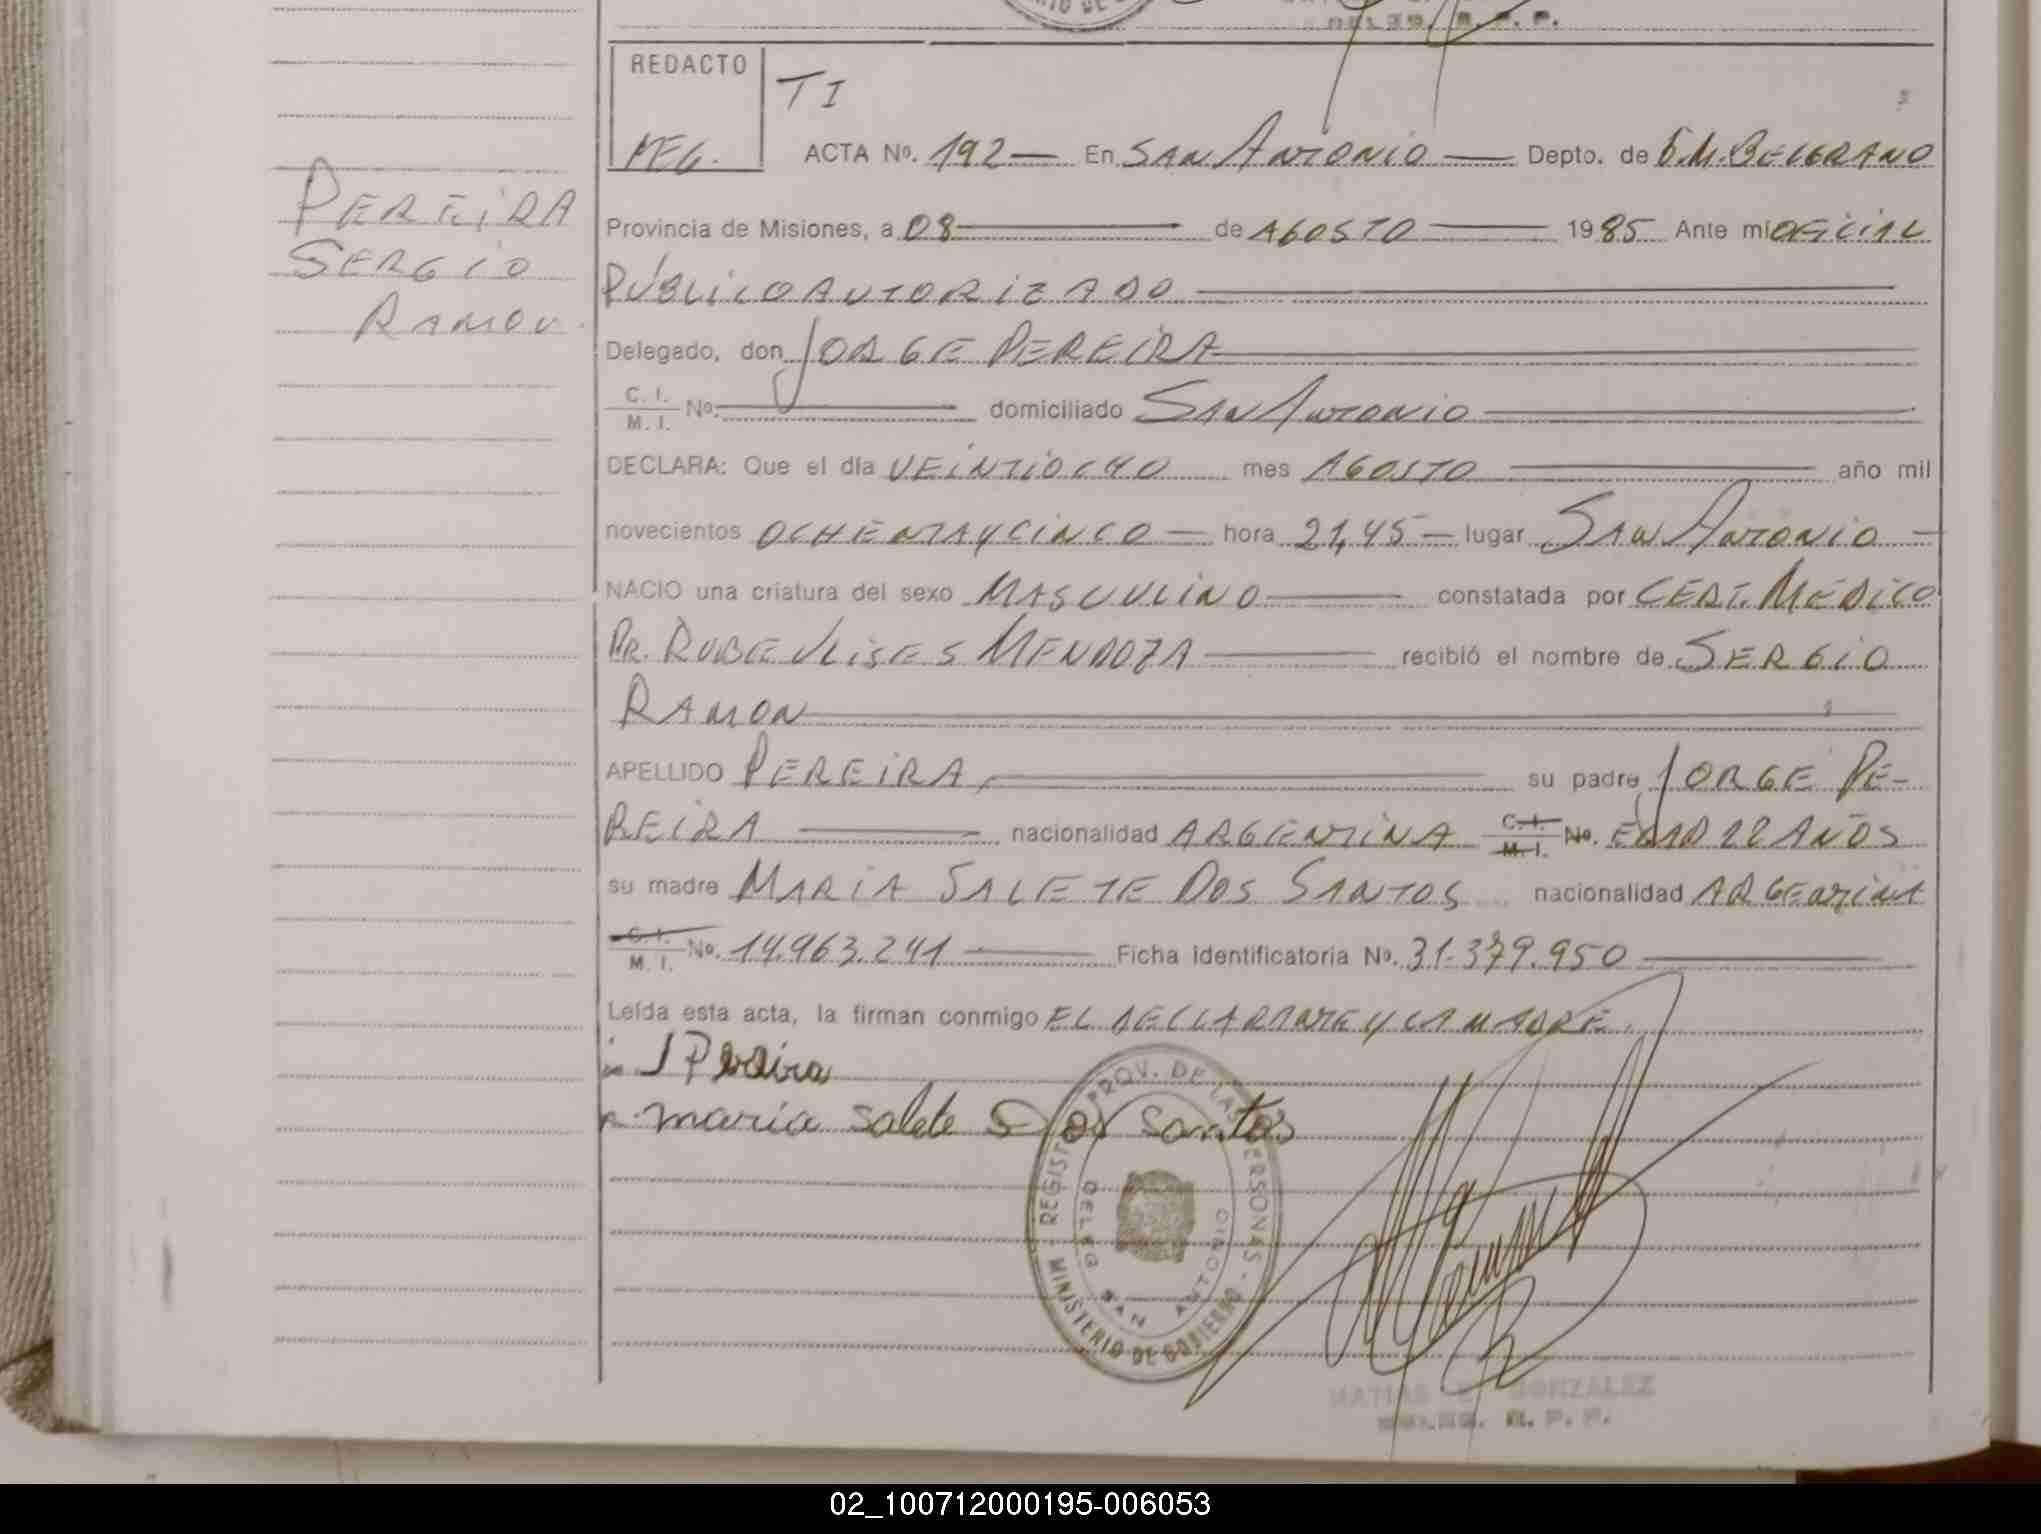 DELEG. R. P. P.
REDACTO
MEG.
TI
ACTA Nº. 192 En SAN ANTONIO Depto. de G.M.BELGRANO
PEREIRA
SERGIO
RAMON.
Provincia de Misiones, a 08 de AGOSTO 1985 Ante mi OFICIAL
PÚBLICO AUTORIZADO
Delegado, don JORGE PEREIRA
C. I.
M. I. Nº. domiciliado SAN ANTONIO
DECLARA: Que el día VEINTIOCHO mes AGOSTO año mil
novecientos OCHENTA Y CINCO hora 21,45 lugar SAN ANTONIO
NACIO una criatura del sexo MASCULINO constatada por CERT. MEDICO
DR. RUBE ULISES MENDOZA recibió el nombre de SERGIO
RAMON
APELLIDO PEREIRA, su padre JORGE PE-
REIRA nacionalidad ARGENTINA C. I. M. I. Nº. EDAD 22 AÑOS
su madre MARIA SALETE DOS SANTOS nacionalidad ARGENTINA
C. I.
M. I. Nº. 14.963.241 Ficha identificatoria Nº. 31.379.950
Leída esta acta, la firman conmigo EL DECLARANTE Y LA MADRE.
J Pereira
maria salete Dos Santos
REGISTRO PROV. DE LAS PERSONAS - MINISTERIO DE GOBIERNO -
DELEG SAN ANTONIO
MATIAS GONZALEZ
DELEG. R. P. P.
02_100712000195-006053